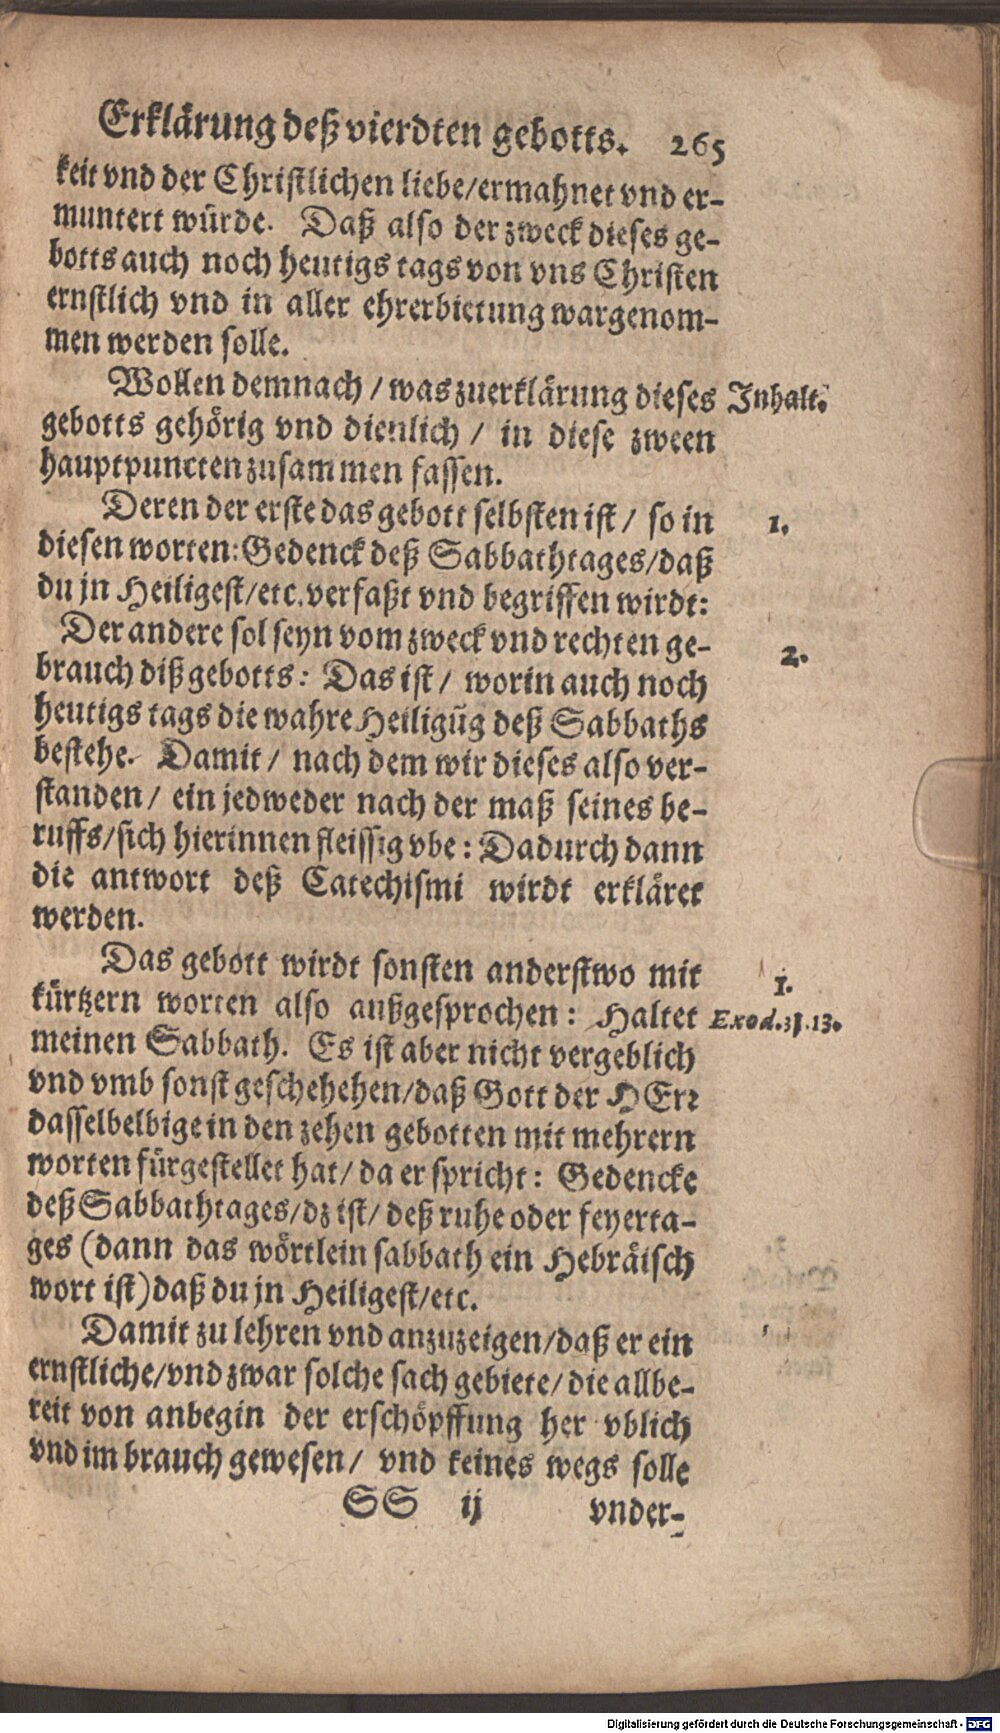 Erklärung deß vierdten gebotts. 265
keit vnd der Christlichen liebe/ermahnet vnd er-
muntert würde. Daß also der zweck dieses ge-
botts auch noch heutigs tags von vns Christen
ernstlich vnd in aller ehrerbietung wargenom-
men werden solle.
Wollen demnach / was zuerklärung dieses Inhalt.
gebotts gehörig vnd dienlich / in diese zween
hauptpuncten zusammen fassen.
Deren der erste das gebott selbsten ist / so in 1.
diesen worten: Gedenck deß Sabbathtages/daß
du jn Heiligest/etc. verfaßt vnd begriffen wirdt:
Der andere sol seyn vom zweck vnd rechten ge- 2.
brauch diß gebotts: Das ist / worin auch noch
heutigs tags die wahre Heiligũg deß Sabbaths
bestehe. Damit / nach dem wir dieses also ver-
standen / ein jedweder nach der maß seines be-
ruffs/sich hierinnen fleissig vbe: Dadurch dann
die antwort deß Catechismi wirdt erkläret
werden.
Das gebott wirdt sonsten anderstwo mit 1.
kürtzern worten also außgesprochen: Haltet Exod.31.13.
meinen Sabbath. Es ist aber nicht vergeblich
vnd vmb sonst geschehehen/daß Gott der HErr
dasselbelbige in den zehen gebotten mit mehrern
worten fürgestellet hat/ da er spricht: Gedencke
deß Sabbathtages/dz ist/ deß ruhe oder feyerta-
ges (dann das wörtlein sabbath ein Hebräisch
wort ist) daß du jn Heiligest/etc.
Damit zu lehren vnd anzuzeigen/daß er ein
ernstliche/vnd zwar solche sach gebiete/ die allbe-
reit von anbegin der erschöpffung her vblich
vnd im brauch gewesen/ vnd keines wegs solle
SS ij vnder-
Digitalisierung gefördert durch die Deutsche Forschungsgemeinschaft - DFG